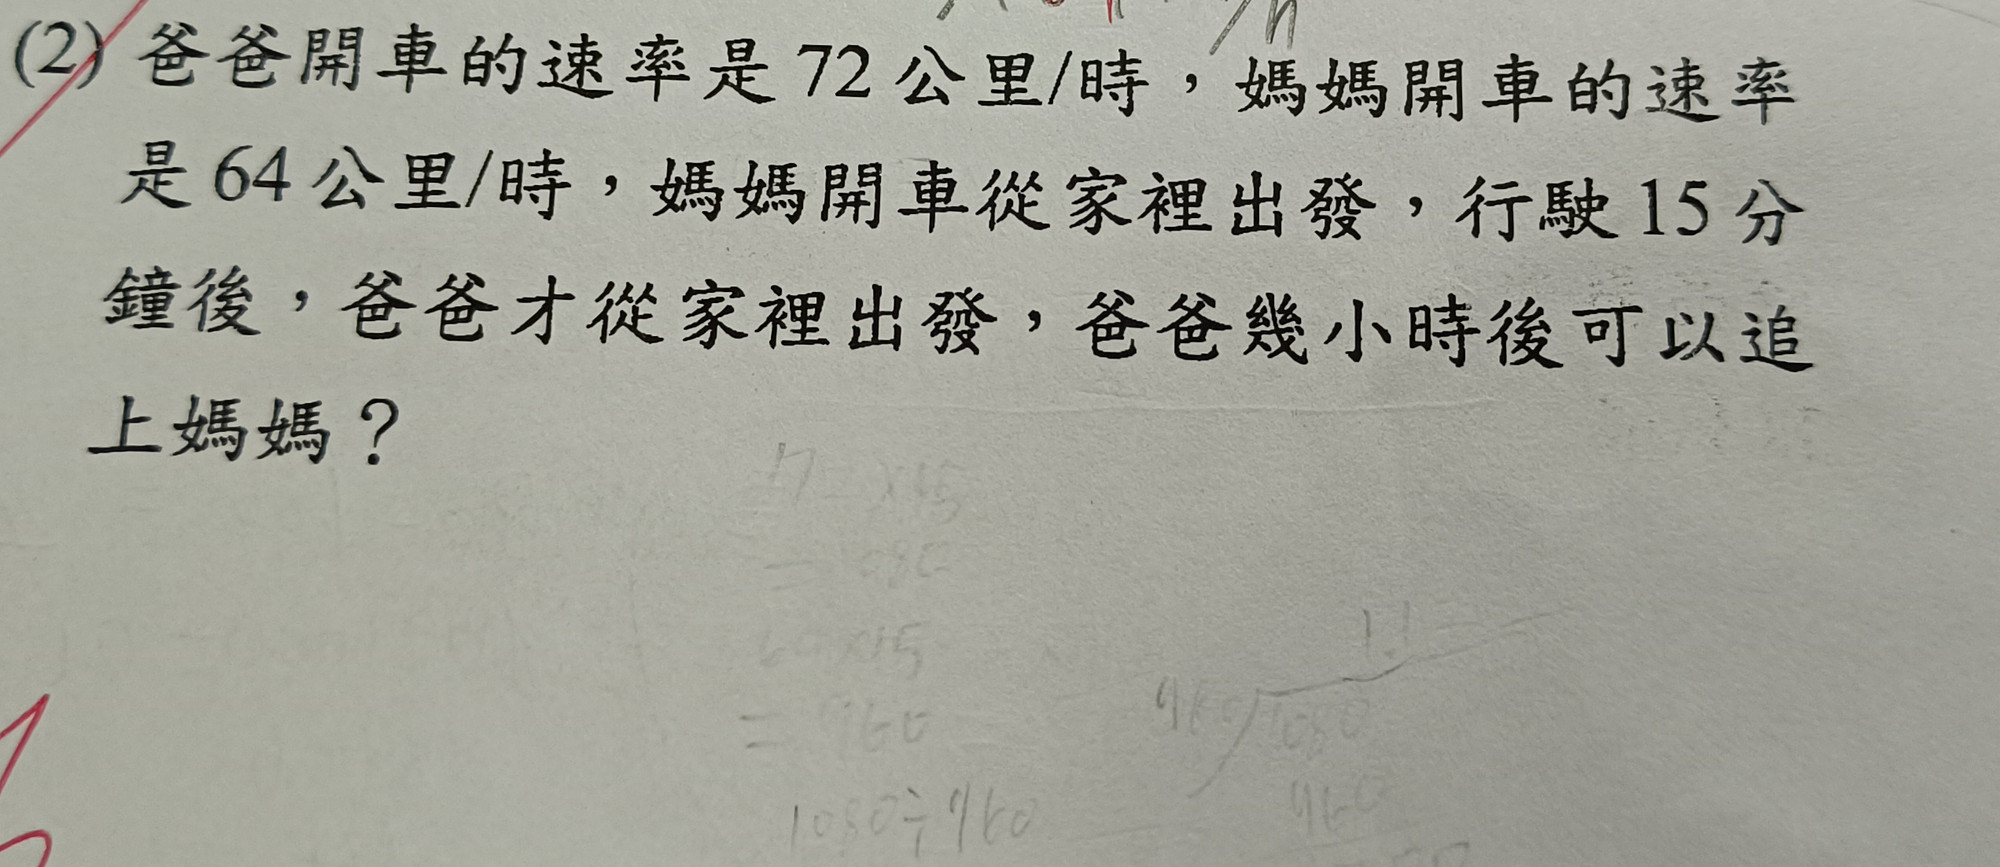 (2) 爸爸開車的速率是72公里/時，媽媽開車的速率
是64公里/時，媽媽開車從家裡出發，行駛15分
鐘後，爸爸才從家裡出發，爸爸幾小時後可以追
上媽媽？
1080÷960